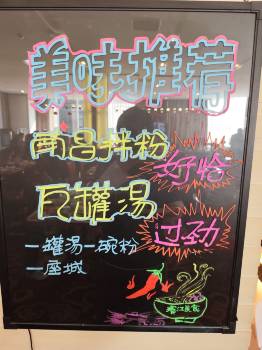 美味推荐
南昌拌粉
好恰
瓦罐汤
过劲
一罐汤一碗粉
一座城